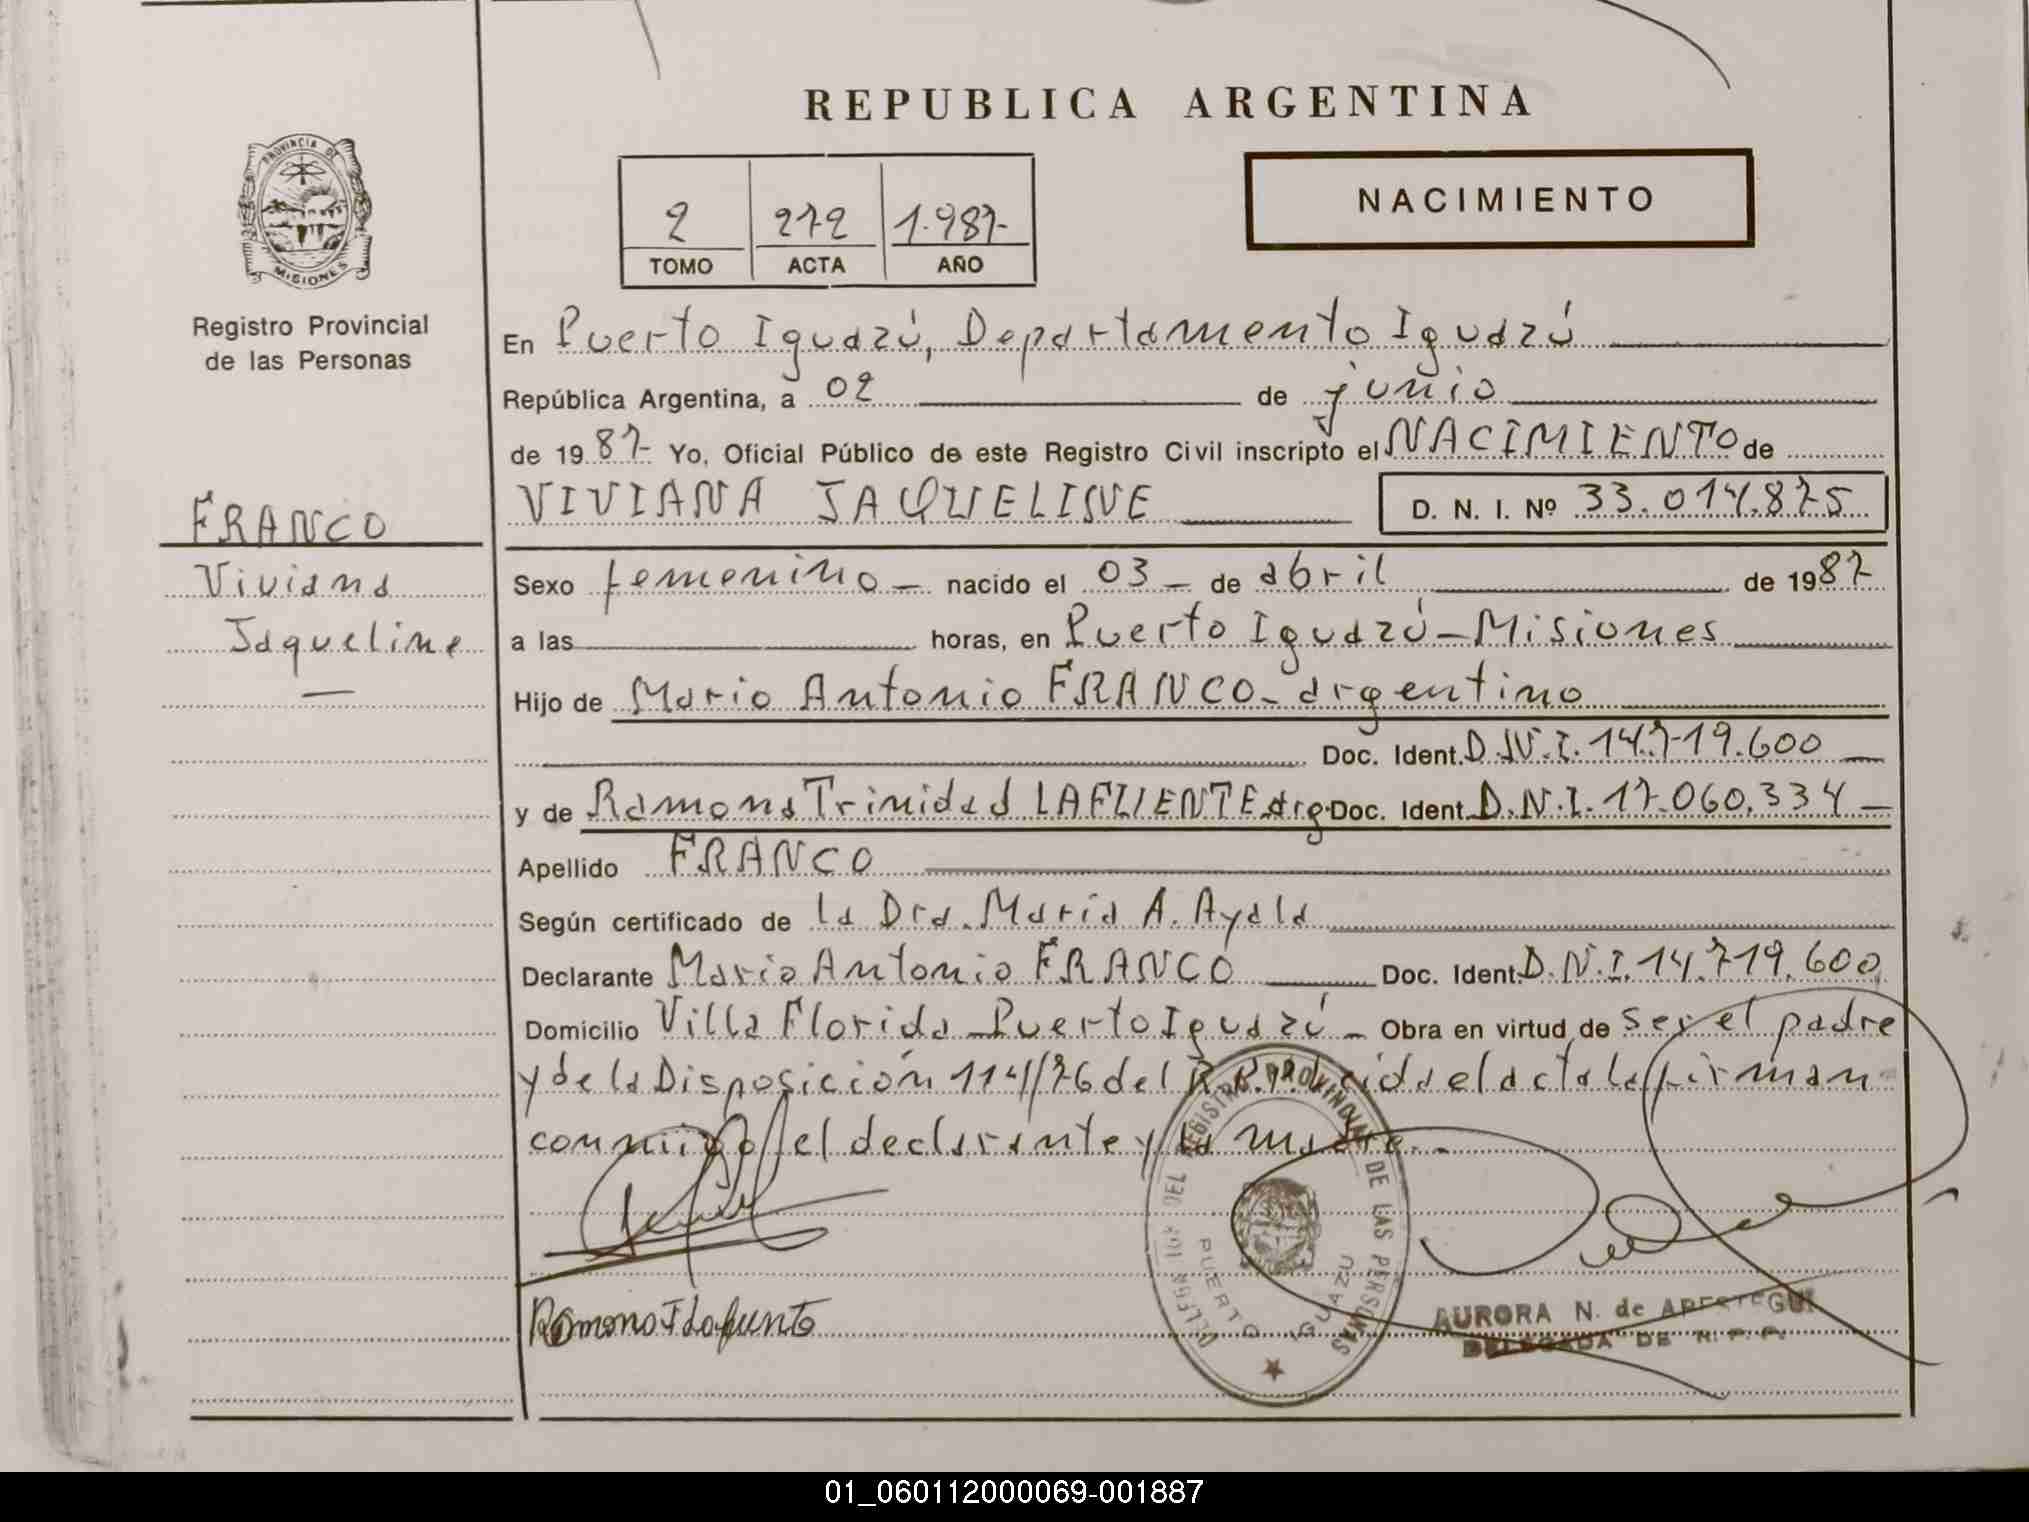 REPUBLICA ARGENTINA
PROVINCIA DE
MISIONES
Registro Provincial
de las Personas
2 272 1.987-
TOMO ACTA AÑO
NACIMIENTO
En Puerto Iguazú, Departamento Iguazú
República Argentina, a 02 de junio
de 1987- Yo, Oficial Público de este Registro Civil inscripto el NACIMIENTO de
FRANCO
VIVIANA JAQUELINE D. N. I. Nº 33.014.875
Viviana
Jaqueline
Sexo femenino - nacido el 03 - de abril de 1987
a las horas, en Puerto Iguazú - Misiones
Hijo de Mario Antonio FRANCO - argentino
Doc. Ident. D.N.I. 14.719.600 -
y de Ramona Trinidad LAFUENTE arg. Doc. Ident. D.N.I. 17.060.334 -
Apellido FRANCO
Según certificado de la Dra. María A. Ayala
Declarante Mario Antonio FRANCO Doc. Ident. D.N.I. 14.719.600
Domicilio Villa Florida - Puerto Iguazú - Obra en virtud de ser el padre
y de la Disposición 114/76 del R.P.P. Leída el acta la firman
conmigo el declarante y la madre.-
DEL REGISTRO PROVINCIAL DE LAS PERSONAS
PUERTO IGUAZU
Ramona T Lafuente
AURORA N. de APESTEGUI
DELEGADA DE R. P. P.
01_060112000069-001887